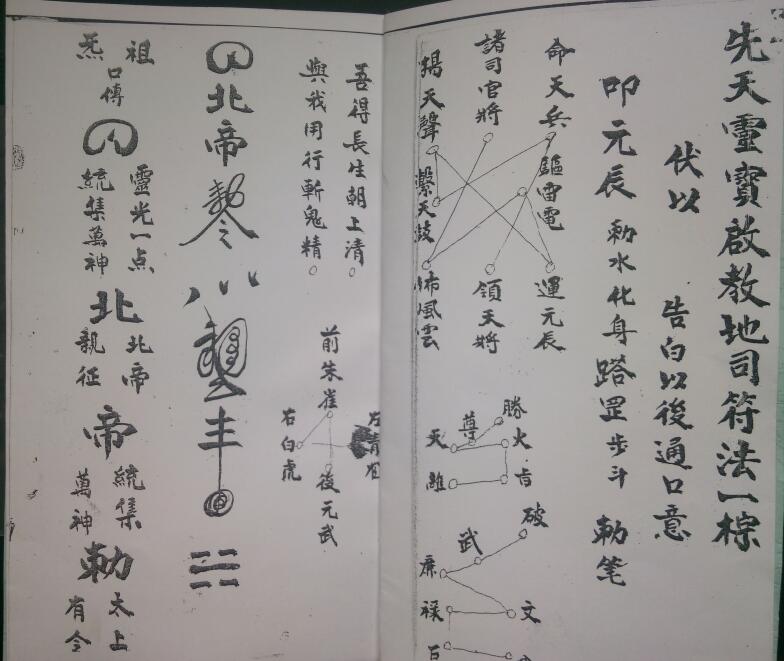 先天靈寶啟教地司符法一棕
伏以 告白以後通口意
叩元辰 勑水化身 踏罡步斗 勑笔
命天兵 驅雷電 運元辰
諸司官將 領天將
揚天聲 擊天鼓 佈風雲
勝 尊 火 天
破 武 廉 文 祿
吾得長生朝上清
與我用行斬鬼精
前朱雀
右白虎
後元武
北帝
祖炁
口傳
靈光一点
統集萬神
北
北帝
親征
帝
統集
萬神
勅
太上
有令